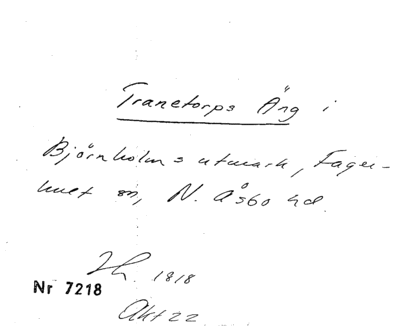 Tranetorps Äng i
Björnholms utmark, Fager-
hult sn, N. Åsbo hd.
Nr 7218
1818
Akt 22